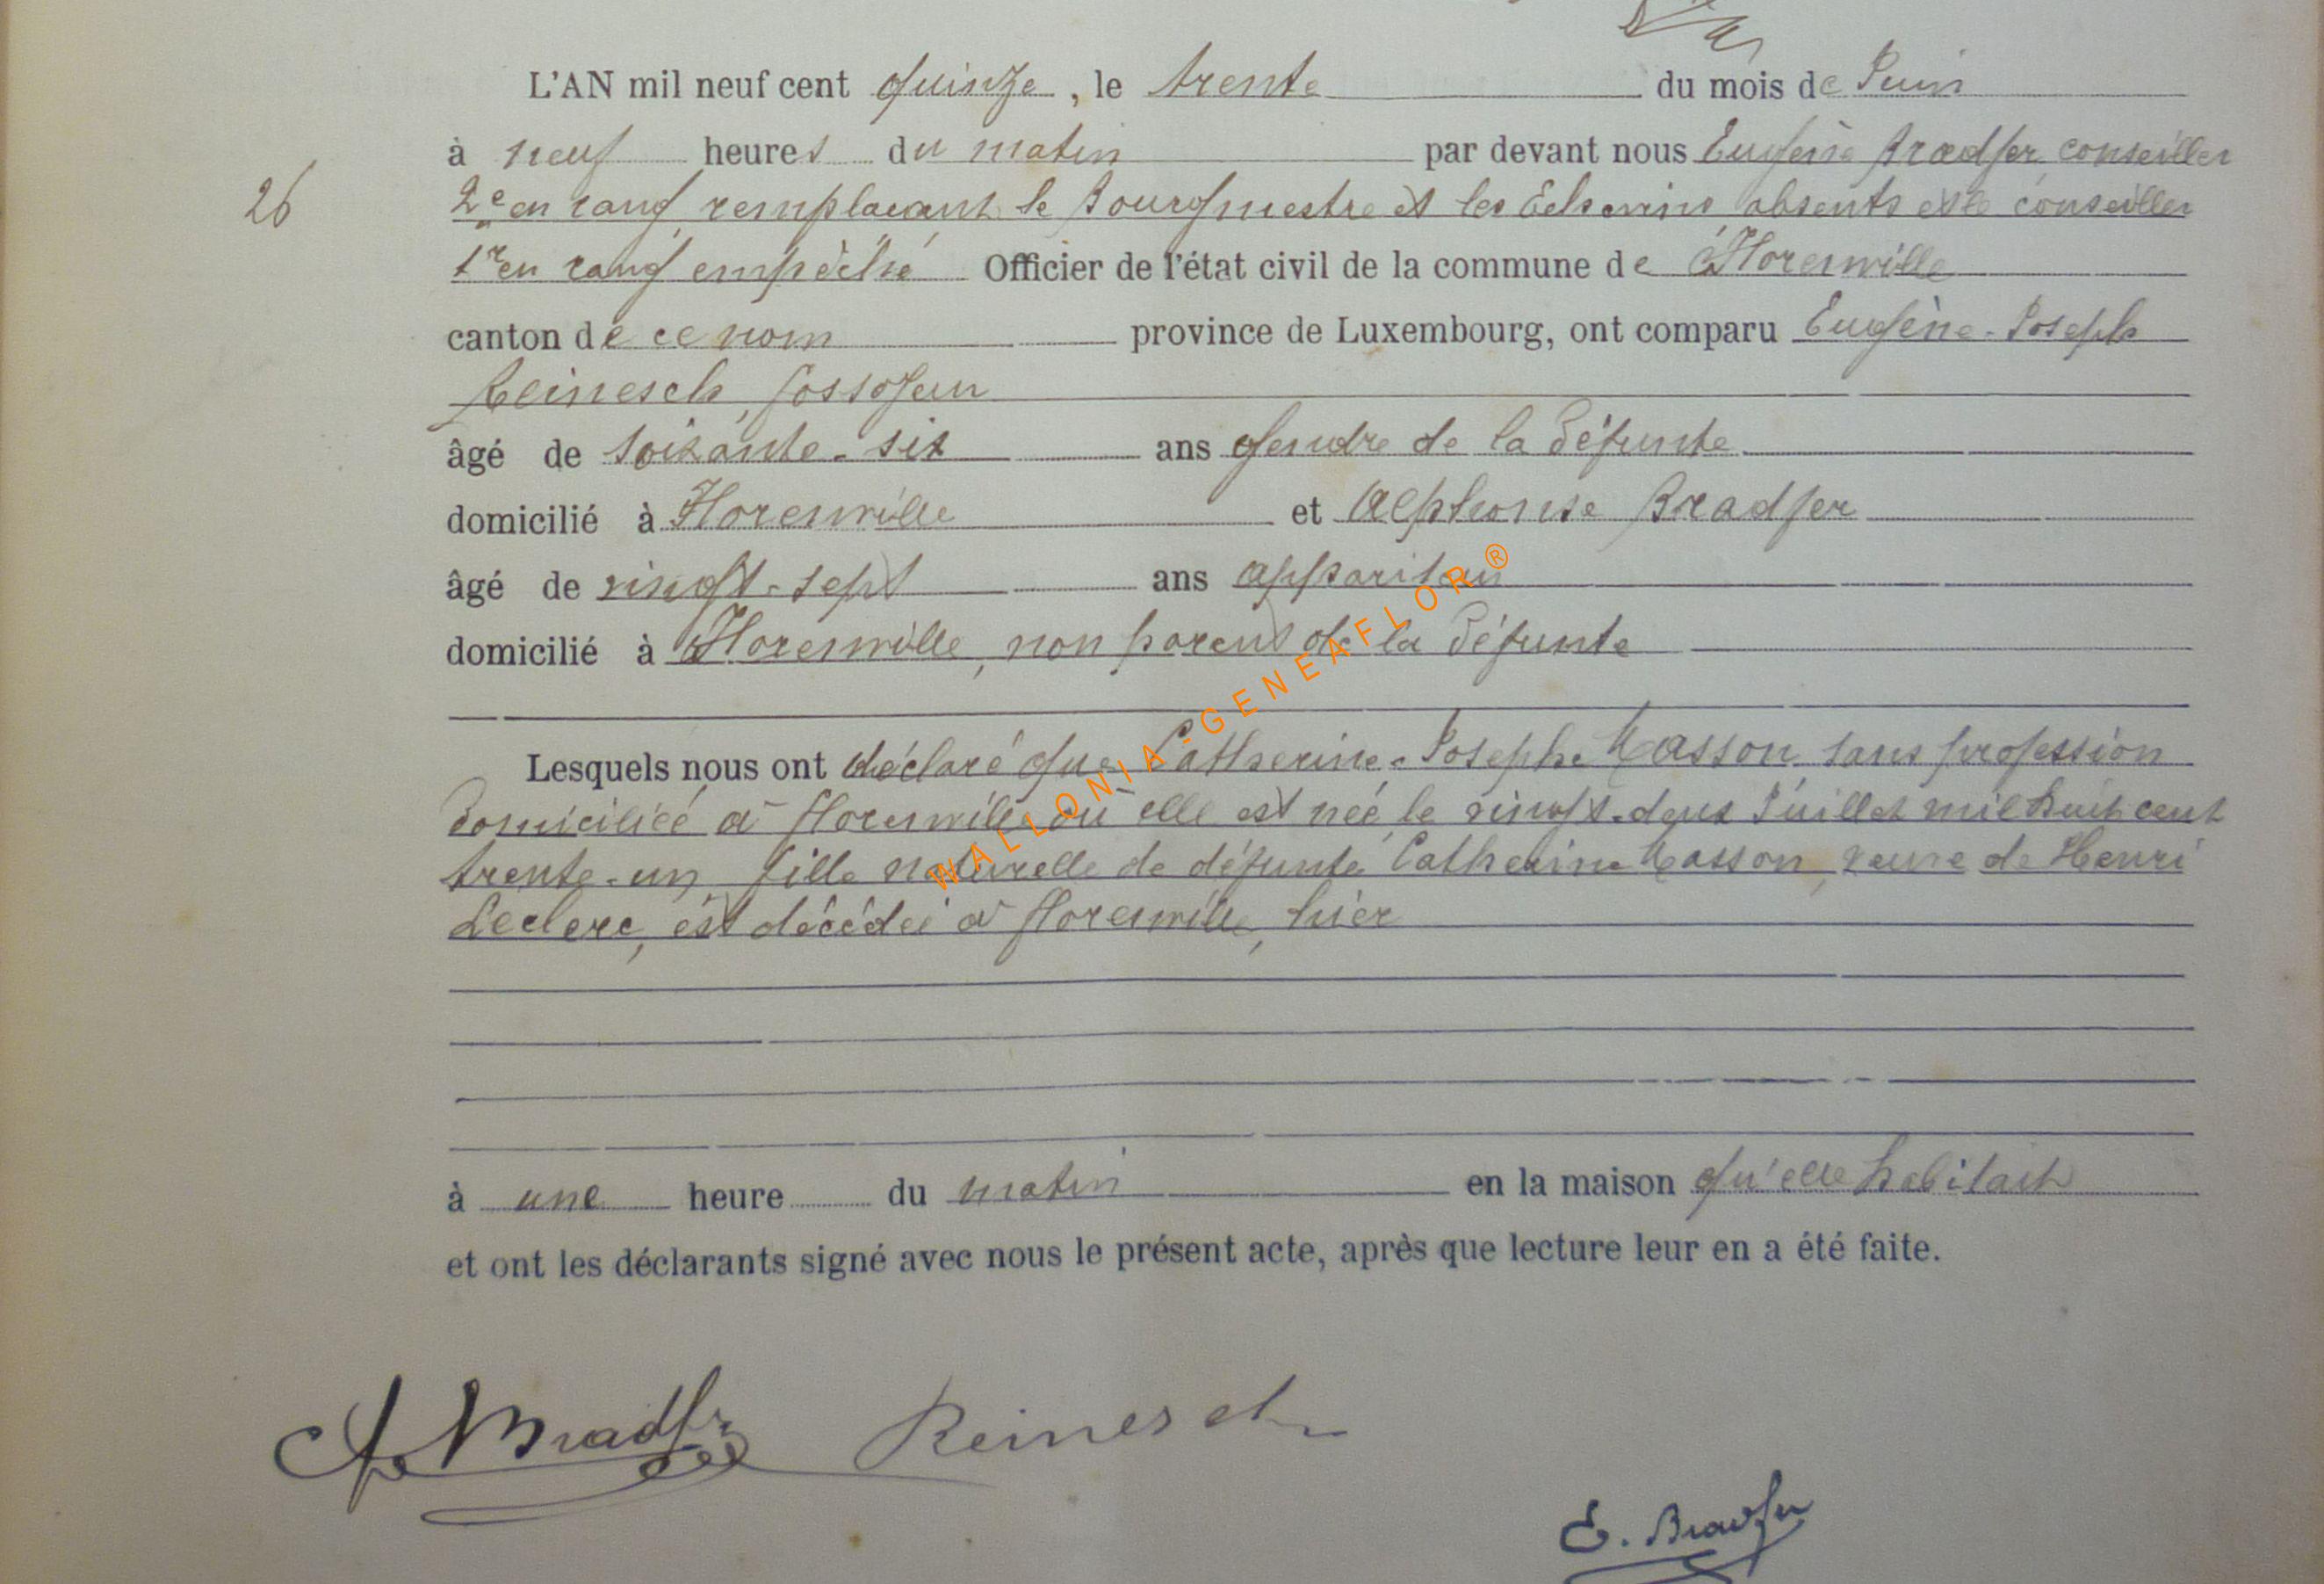 L'AN mil neuf cent quinze, le trente du mois de Juin
à neuf heures du matin par devant nous Eugène Bradfer, conseiller
26
2e en rang, remplaçant le Bourgmestre et les Echevins absents et le conseiller
1er en rang empêché Officier de l'état civil de la commune de Florenville
canton de ce nom province de Luxembourg, ont comparu Eugène-Joseph
Reinesch, fossoyeur
âgé de soixante-six ans gendre de la défunte
domicilié à Florenville et Alphonse Bradfer
âgé de vingt-sept ans appariteur
domicilié à Florenville, non parent de la défunte
WALLONIA-GENEAFLOR®
Lesquels nous ont déclaré que Catherine-Josephe Masson, sans profession
domiciliée à Florenville où elle est née, le vingt-deux Juillet mil huit cent
trente-un, fille naturelle de défunte Catherine Masson, veuve de Henri
Leclerc, est décédée à Florenville, hier
à une heure du matin en la maison qu'elle habitait
et ont les déclarants signé avec nous le présent acte, après que lecture leur en a été faite.
A Bradfer Reinesch
E. Bradfer